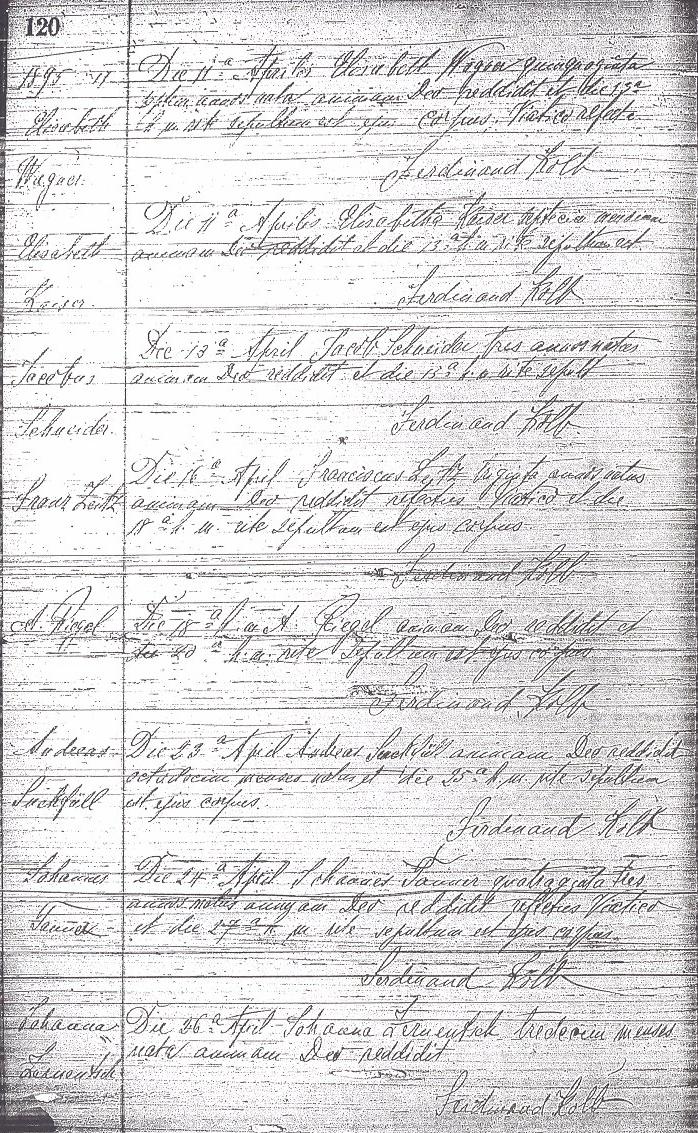 120
1895 11
Elisabeth
Wagner
Die 11ª Aprilis Elisabeth Wagner quinquaginta
septem annos nata animam Deo reddidit et die 13ª
h. m. rite sepultum est ejus corpus. Viatico refecta
Ferdinand Kolb
Elisabeth
Kaiser
Die 11ª Aprilis Elisabetha Kaiser septem mensium
animam Deo reddidit et die 13ª h. m rite sepultum est
Ferdinand Kolb
Jacobus
Schneider
Die 13ª April Jacob Schneider tres annos natus
animam Deo reddidit et die 15ª h. m rite sepult
Ferdinand Kolb
Franz Leitz
Die 16ª April Franciscus annos natus
animam Deo reddidit refectus Viatico et die
18ª h. m. rite sepultum est ejus corpus
Ferdinand Kolb
A. Riegel
Die 18ª h. m A. Riegel animam Deo reddidit et
die 20ª h. m. rite sepultum est ejus corpus
Ferdinand Kolb
Andreas
Sackfüll
Die 23ª April Andreas Sackfüll animam Deo reddidit
octodecim menses natus et die 25ª h. m. rite sepultum
est ejus corpus.
Ferdinand Kolb
Johannes
Tanner
Die 24ª April Johannes Tanner quadraginta tres
annos natus animam Deo reddidit refectus Viatico
et die 27ª h. m rite sepultum est ejus corpus.
Ferdinand Kolb
Johanna
Die 26ª April Johanna tredecim menses
nata animam Deo reddidit
Ferdinand Kolb